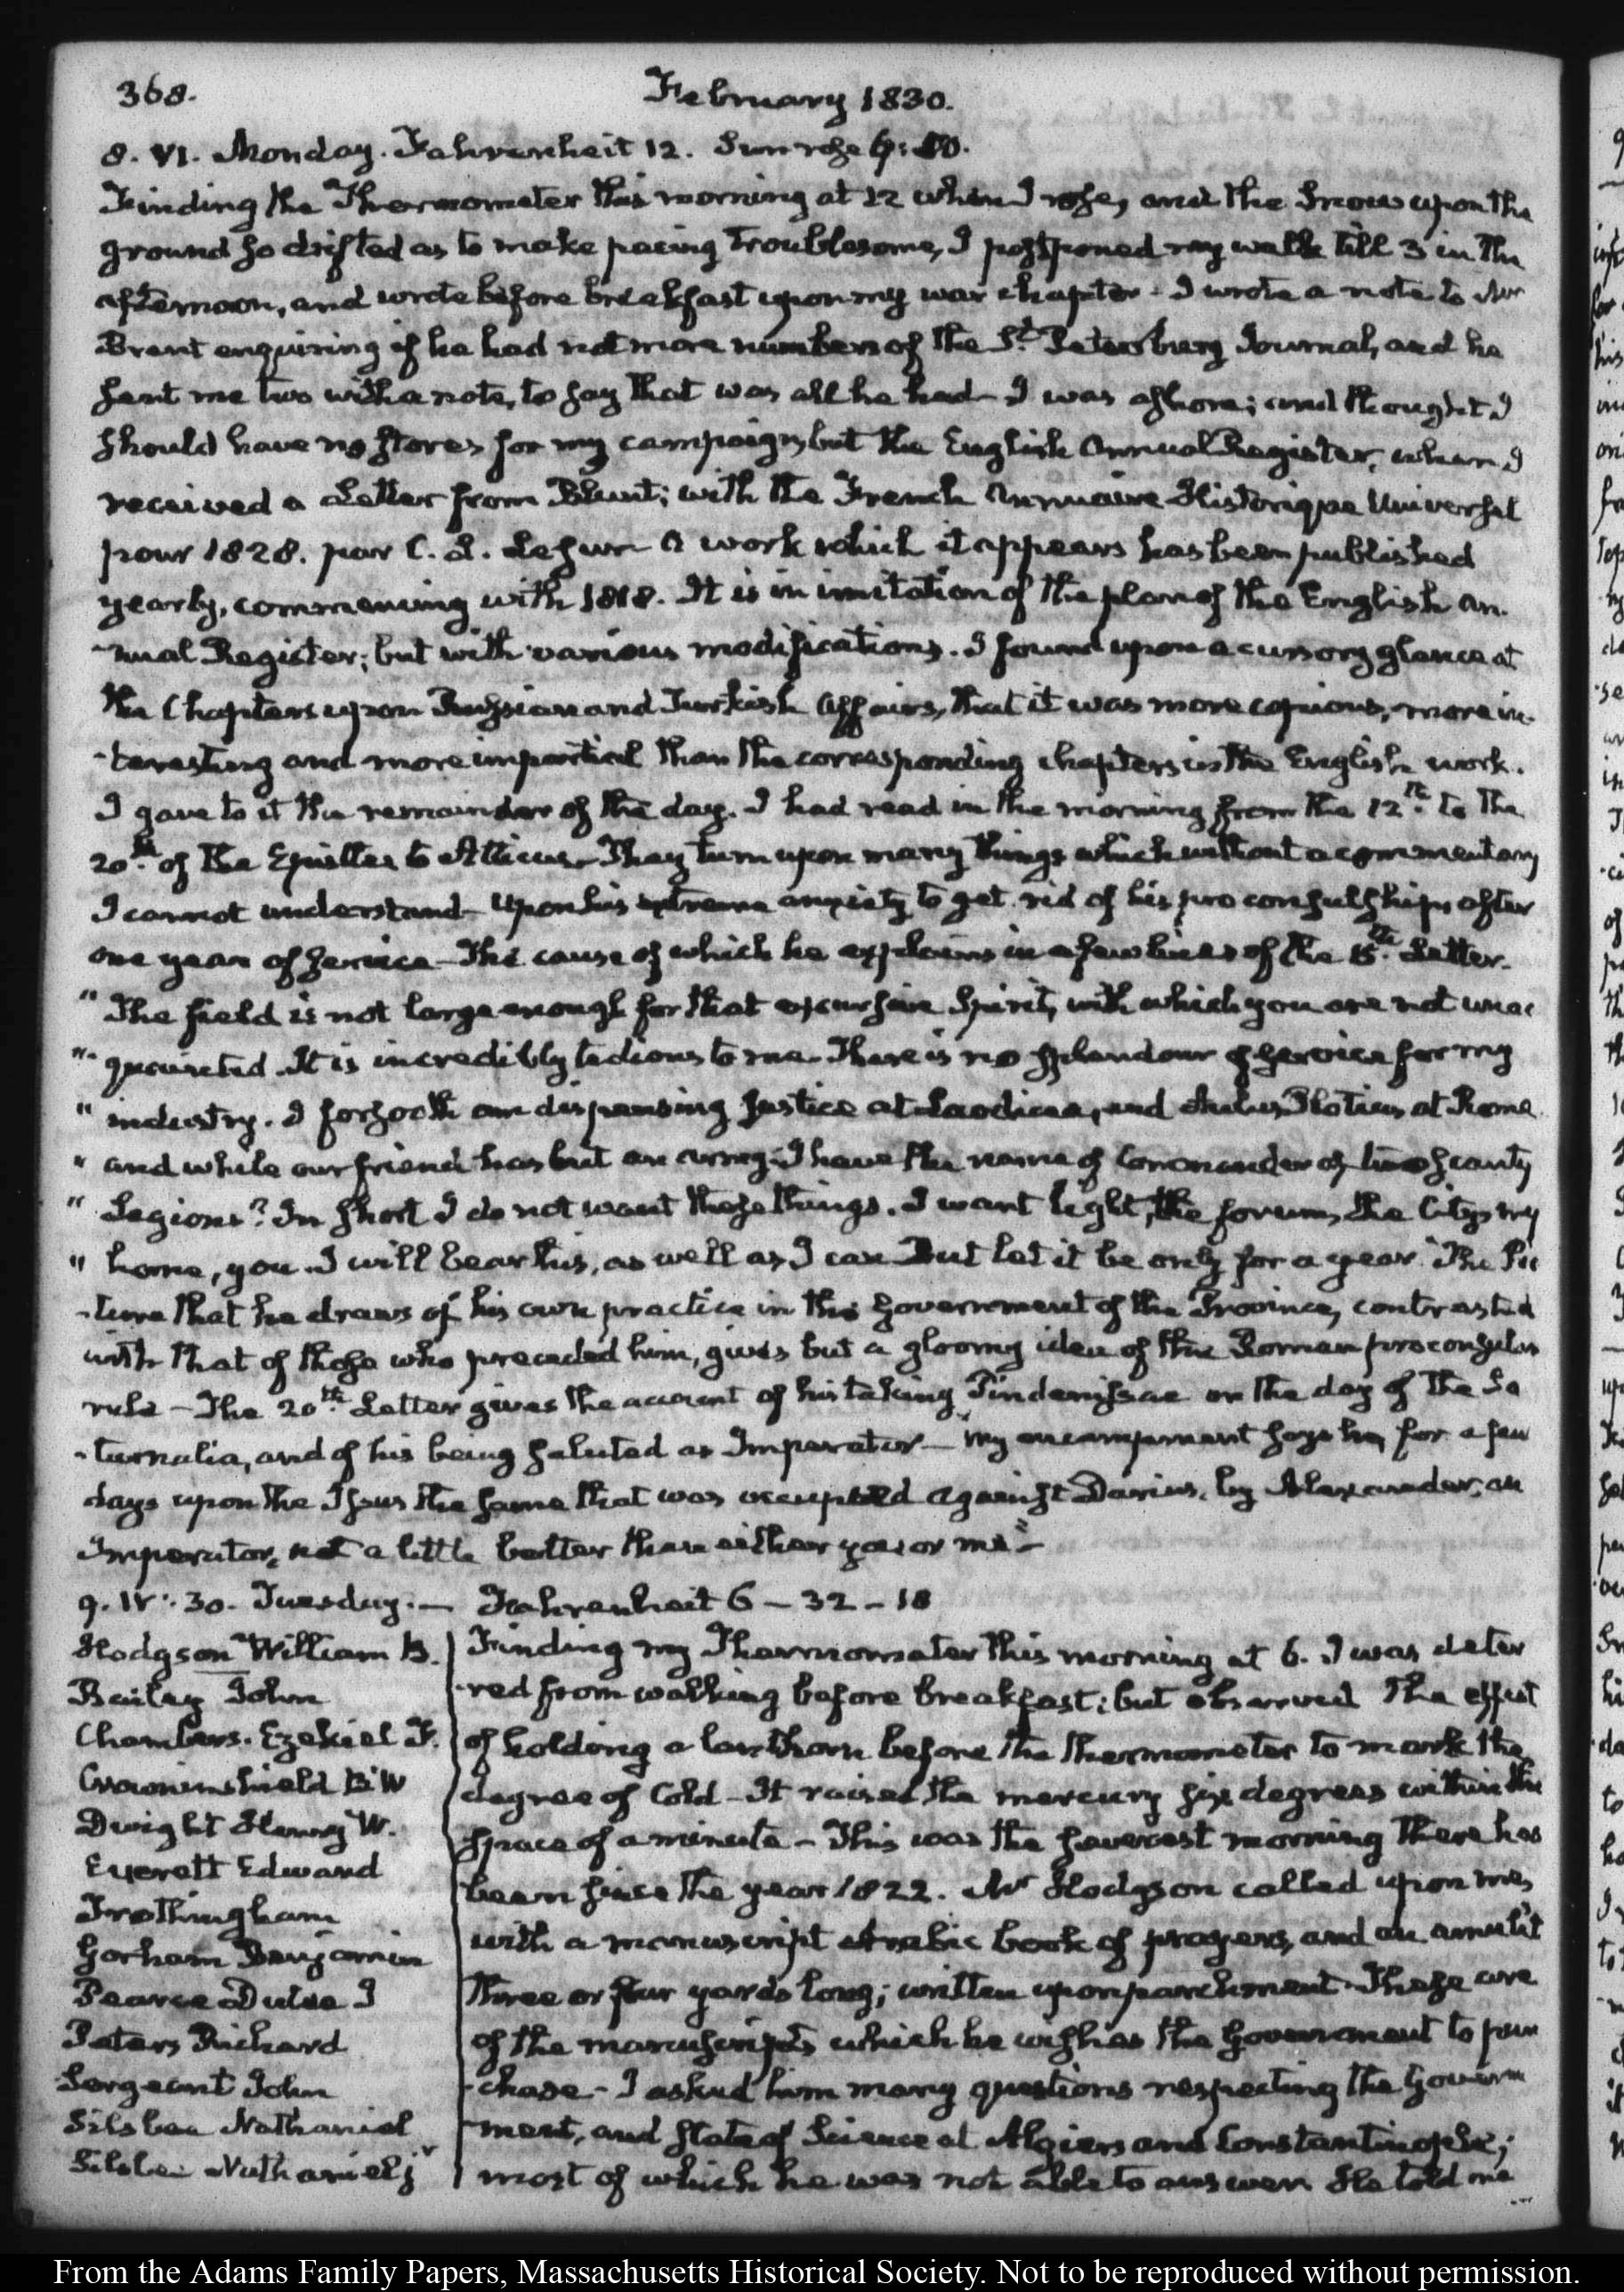 368.
February 1830.
8. VI. Monday. Fahrenheit 12. Sun rose 6:50.
Finding the Thermometer this morning at 12 when I rose, and the Snow upon the
ground so drifted as to make pacing troublesome, I postponed my walk till 3 in the
afternoon, and wrote before breakfast upon my war chapter - I wrote a note to Mr
Brent enquiring if he had not more numbers of the St. Petersburg Journal, and he
sent me two with a note, to say that was all he had - I was ashore; and thought I
should have no stores for my campaign, but the English Annual Register, when I
received a Letter from Blunt; with the French Annuaire Historique Universel
pour 1828. par C. L. Lesur A work which it appears has been published
yearly, commencing with 1818. It is in imitation of the plan of the English An-
-nual Register; but with various modifications. I found upon a cursory glance at
the Chapters upon Russian and Turkish Affairs, that it was more copious, more in-
-teresting and more impartial than the corresponding chapters in the English work.
I gave to it the remainder of the day. I had read in the morning from the 12th. to the
20th. of the Epistles to Atticus - They turn upon many things which without a commentary
I cannot understand - Upon his extreme anxiety to get rid of his proconsulship after
one year of service - The cause of which he explains in a few lines of the 15th. Letter.
" The field is not large enough for that excursive Spirit, with which you are not unac
"- quainted. It is incredibly tedious to me. There is no splendour of service for my
" industry. I forsooth am dispensing justice at Laodicea, and Aulus Plotius at Rome
" and while our friend has but an army, I have the name of Commander of two scanty
" Legions? In short I do not want these things. I want light, the forum, the City, my
" home, you. I will bear this, as well as I can But let it be only for a year." The Pic
-ture that he draws of his own practice in the Government of the Province, contrasted
with that of those who preceded him, gives but a gloomy idea of the Roman proconsular
rule - The 20th. Letter gives the account of his taking Pindenissae on the day of the Sa
-turnalia, and of his being saluted as Imperator - "My encampment says he, for a few
days upon the Issus the same that was occupied against Darius, by Alexander, an
Imperator, not a little better than either you or me" -
9. IV: 30. Tuesday. - Fahrenheit 6 - 32 - 18
Hodgson William B.
Bailey John
Chambers. Ezekiel F.
Crowninshield B W
Dwight Henry W.
Everett Edward
Frothingham
Gorham Benjamin
Pearce Dutee J
Peters Richard
Sergeant John
Silsbee Nathaniel
Silsbee Nathaniel jr
Finding my Thermometer this morning at 6. I was deter
-red from walking before breakfast; but observed the effect
of holding a lanthorn before the thermometer to mark the
degree of Cold - It raised the mercury six degrees within the
space of a minute - This was the severest morning there has
been since the year 1822. Mr Hodgson called upon me,
with a manuscript Arabic book of prayers, and an amulet
three or four yards long; written upon parchment. These are
of the manuscripts which he wishes the Government to pur
-chase - I asked him many questions respecting the Govern
-ment, and state of Science at Algiers and Constantinople;
most of which he was not able to answer. He told me
From the Adams Family Papers, Massachusetts Historical Society. Not to be reproduced without permission.